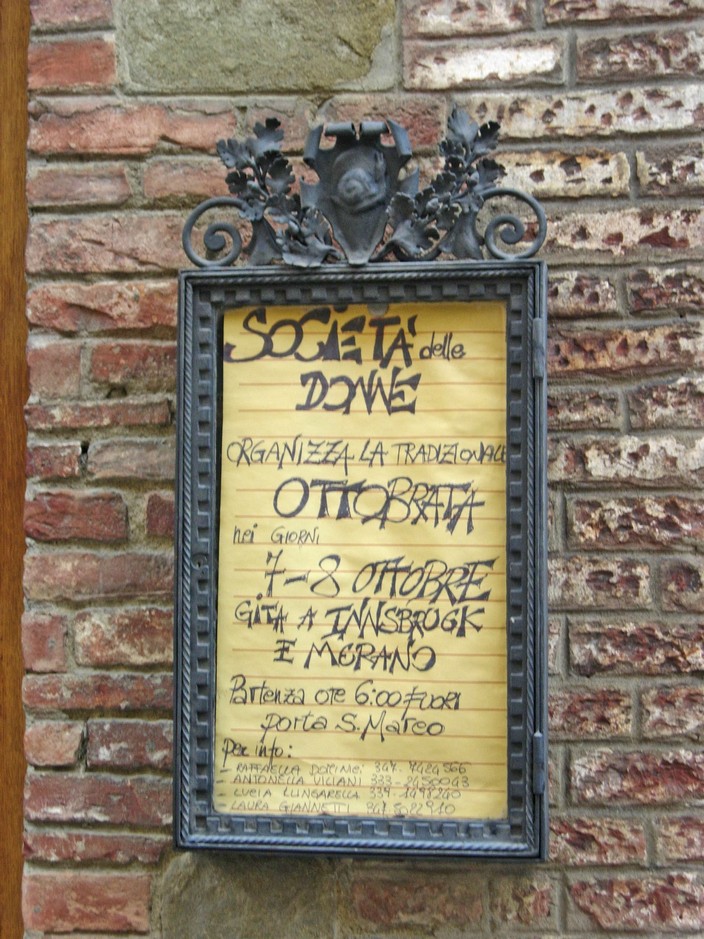 SOCIETÀ delle
DONNE
ORGANIZZA LA TRADIZIONALE
OTTOBRATA
nei GIORNI
7-8 OTTOBRE
GITA A INNSBRUCK
E MERANO
Partenza ore 6:00 FUORI
porta S. Marco
Per info:
- RAFFAELLA
- ANTONELLA VILIANI 333-2450043
- LUCIA LUNGARELLA
- LAURA GIANNETTI